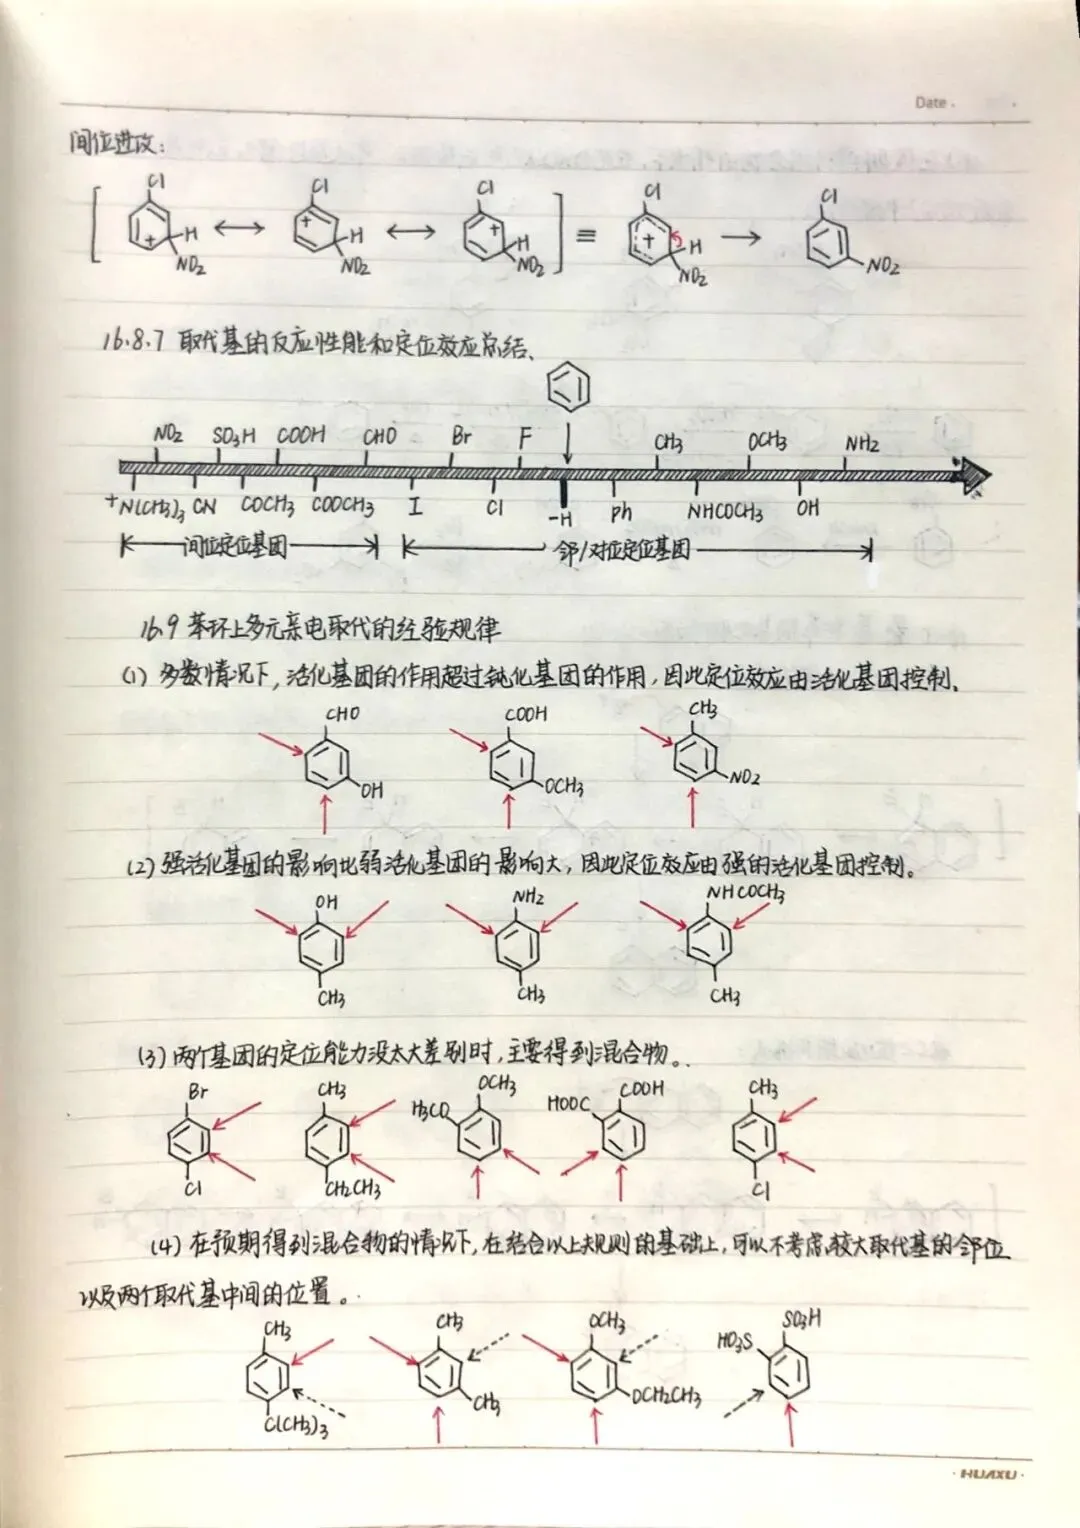 Date.
间位进攻:
Cl Cl Cl Cl Cl
+ H ↔ + H ↔ + H ≡ + H → NO2
NO2 NO2 NO2 NO2
16.8.7 取代基的反应性能和定位效应总结、
NO2 SO3H COOH CHO Br F CH3 OCH3 NH2
+N(CH3)3 CN COCH3 COOCH3 I Cl -H Ph NHCOCH3 OH
间位定位基团 邻/对位定位基团
16.9 苯环上多元亲电取代的经验规律
(1) 多数情况下,活化基团的作用超过钝化基团的作用,因此定位效应由活化基团控制、
CHO COOH CH3
OH OCH3 NO2
(2) 强活化基团的影响比弱活化基团的影响大,因此定位效应由强的活化基团控制。
OH NH2 NHCOCH3
CH3 CH3 CH3
(3) 两个基团的定位能力没太大差别时,主要得到混合物。
Br CH3 OCH3 COOH CH3
H3CO HOOC
Cl CH2CH3 Cl
(4) 在预期得到混合物的情况下,在结合以上规则的基础上,可以不考虑较大取代基的邻位
以及两个取代基中间的位置。
CH3 CH3 OCH3 SO3H
HO3S
C(CH3)3 CH3 OCH2CH3
·HUAXU·